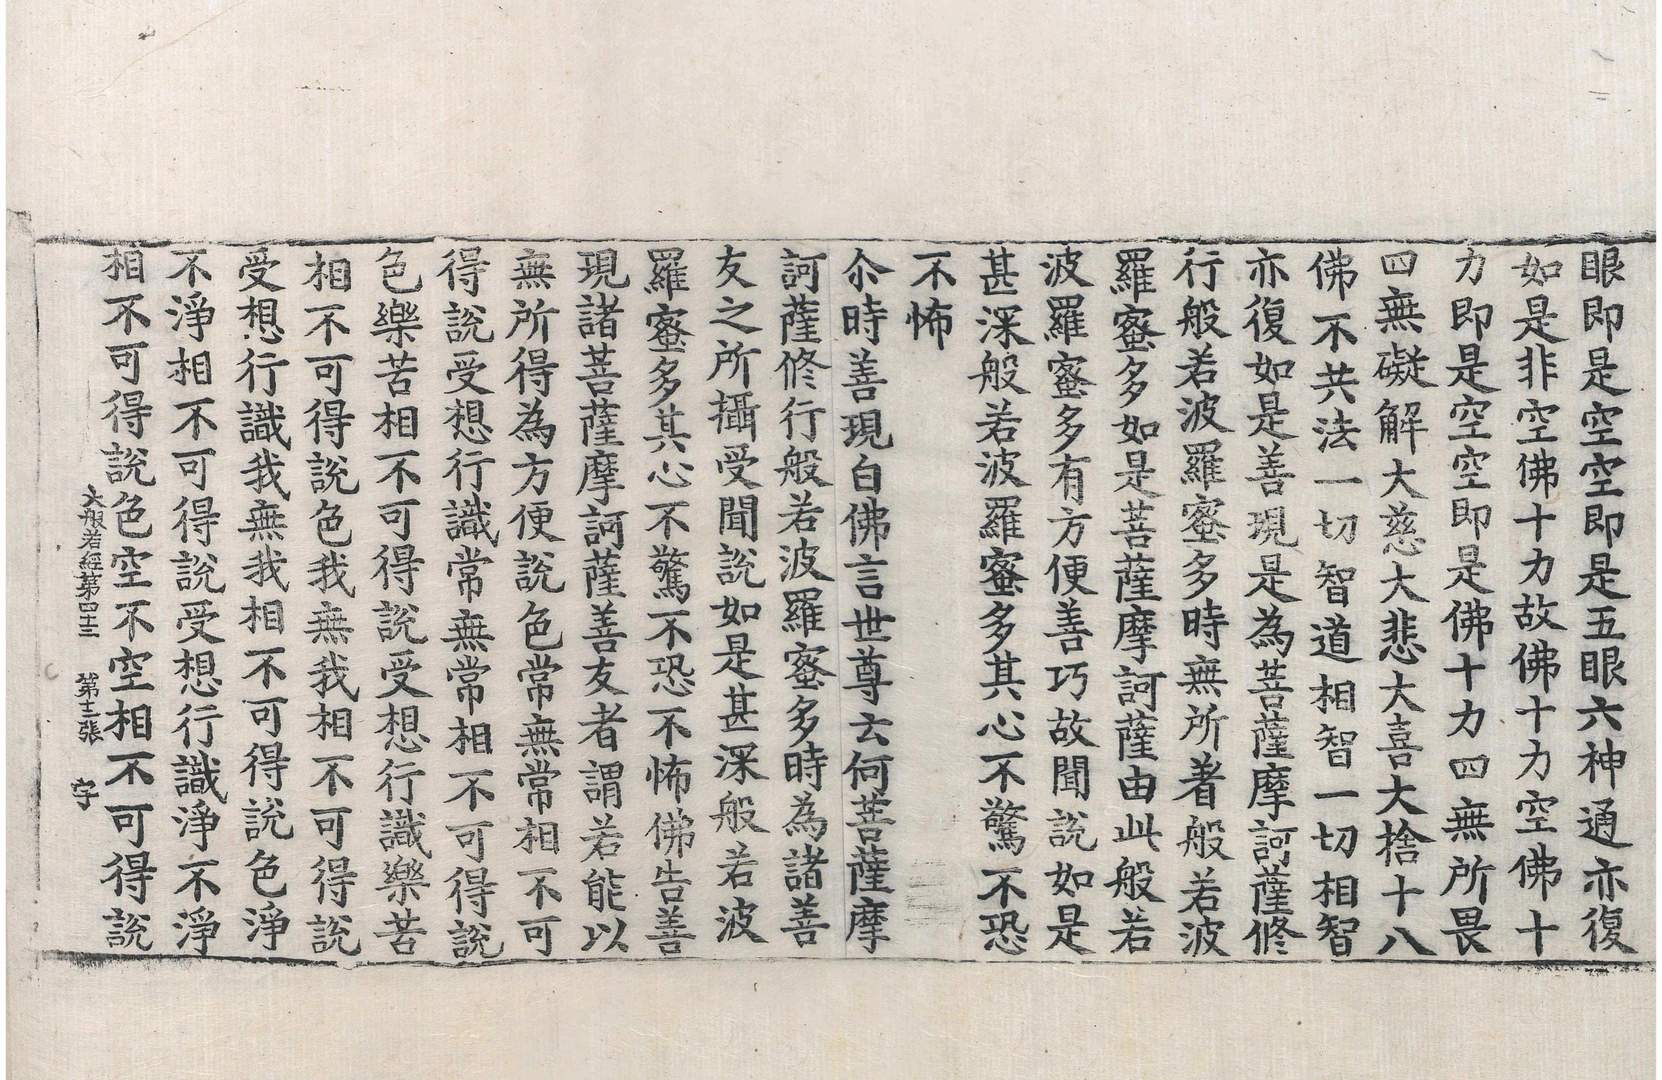 眼即是空空即是五眼六神通亦復
如是非空佛十力故佛十力空佛十
力即是空空即是佛十力四無所畏
四無礙解大慈大悲大喜大捨十八
佛不共法一切智道相智一切相智
亦復如是善現是為菩薩摩訶薩修
行般若波羅蜜多時無所著般若波
羅蜜多如是菩薩摩訶薩由此般若
波羅蜜多有方便善巧故聞說如是
甚深般若波羅蜜多其心不驚不恐
不怖
尒時善現白佛言世尊云何菩薩摩
訶薩修行般若波羅蜜多時為諸善
友之所攝受聞說如是甚深般若波
羅蜜多其心不驚不恐不怖佛告善
現諸菩薩摩訶薩善友者謂若能以
無所得為方便說色常無常相不可
得說受想行識常無常相不可得說
色樂苦相不可得說受想行識樂苦
相不可得說色我無我相不可得說
受想行識我無我相不可得說色淨
不淨相不可得說受想行識淨不淨
相不可得說色空不空相不可得說
大般若經第四十三 第十二張 字